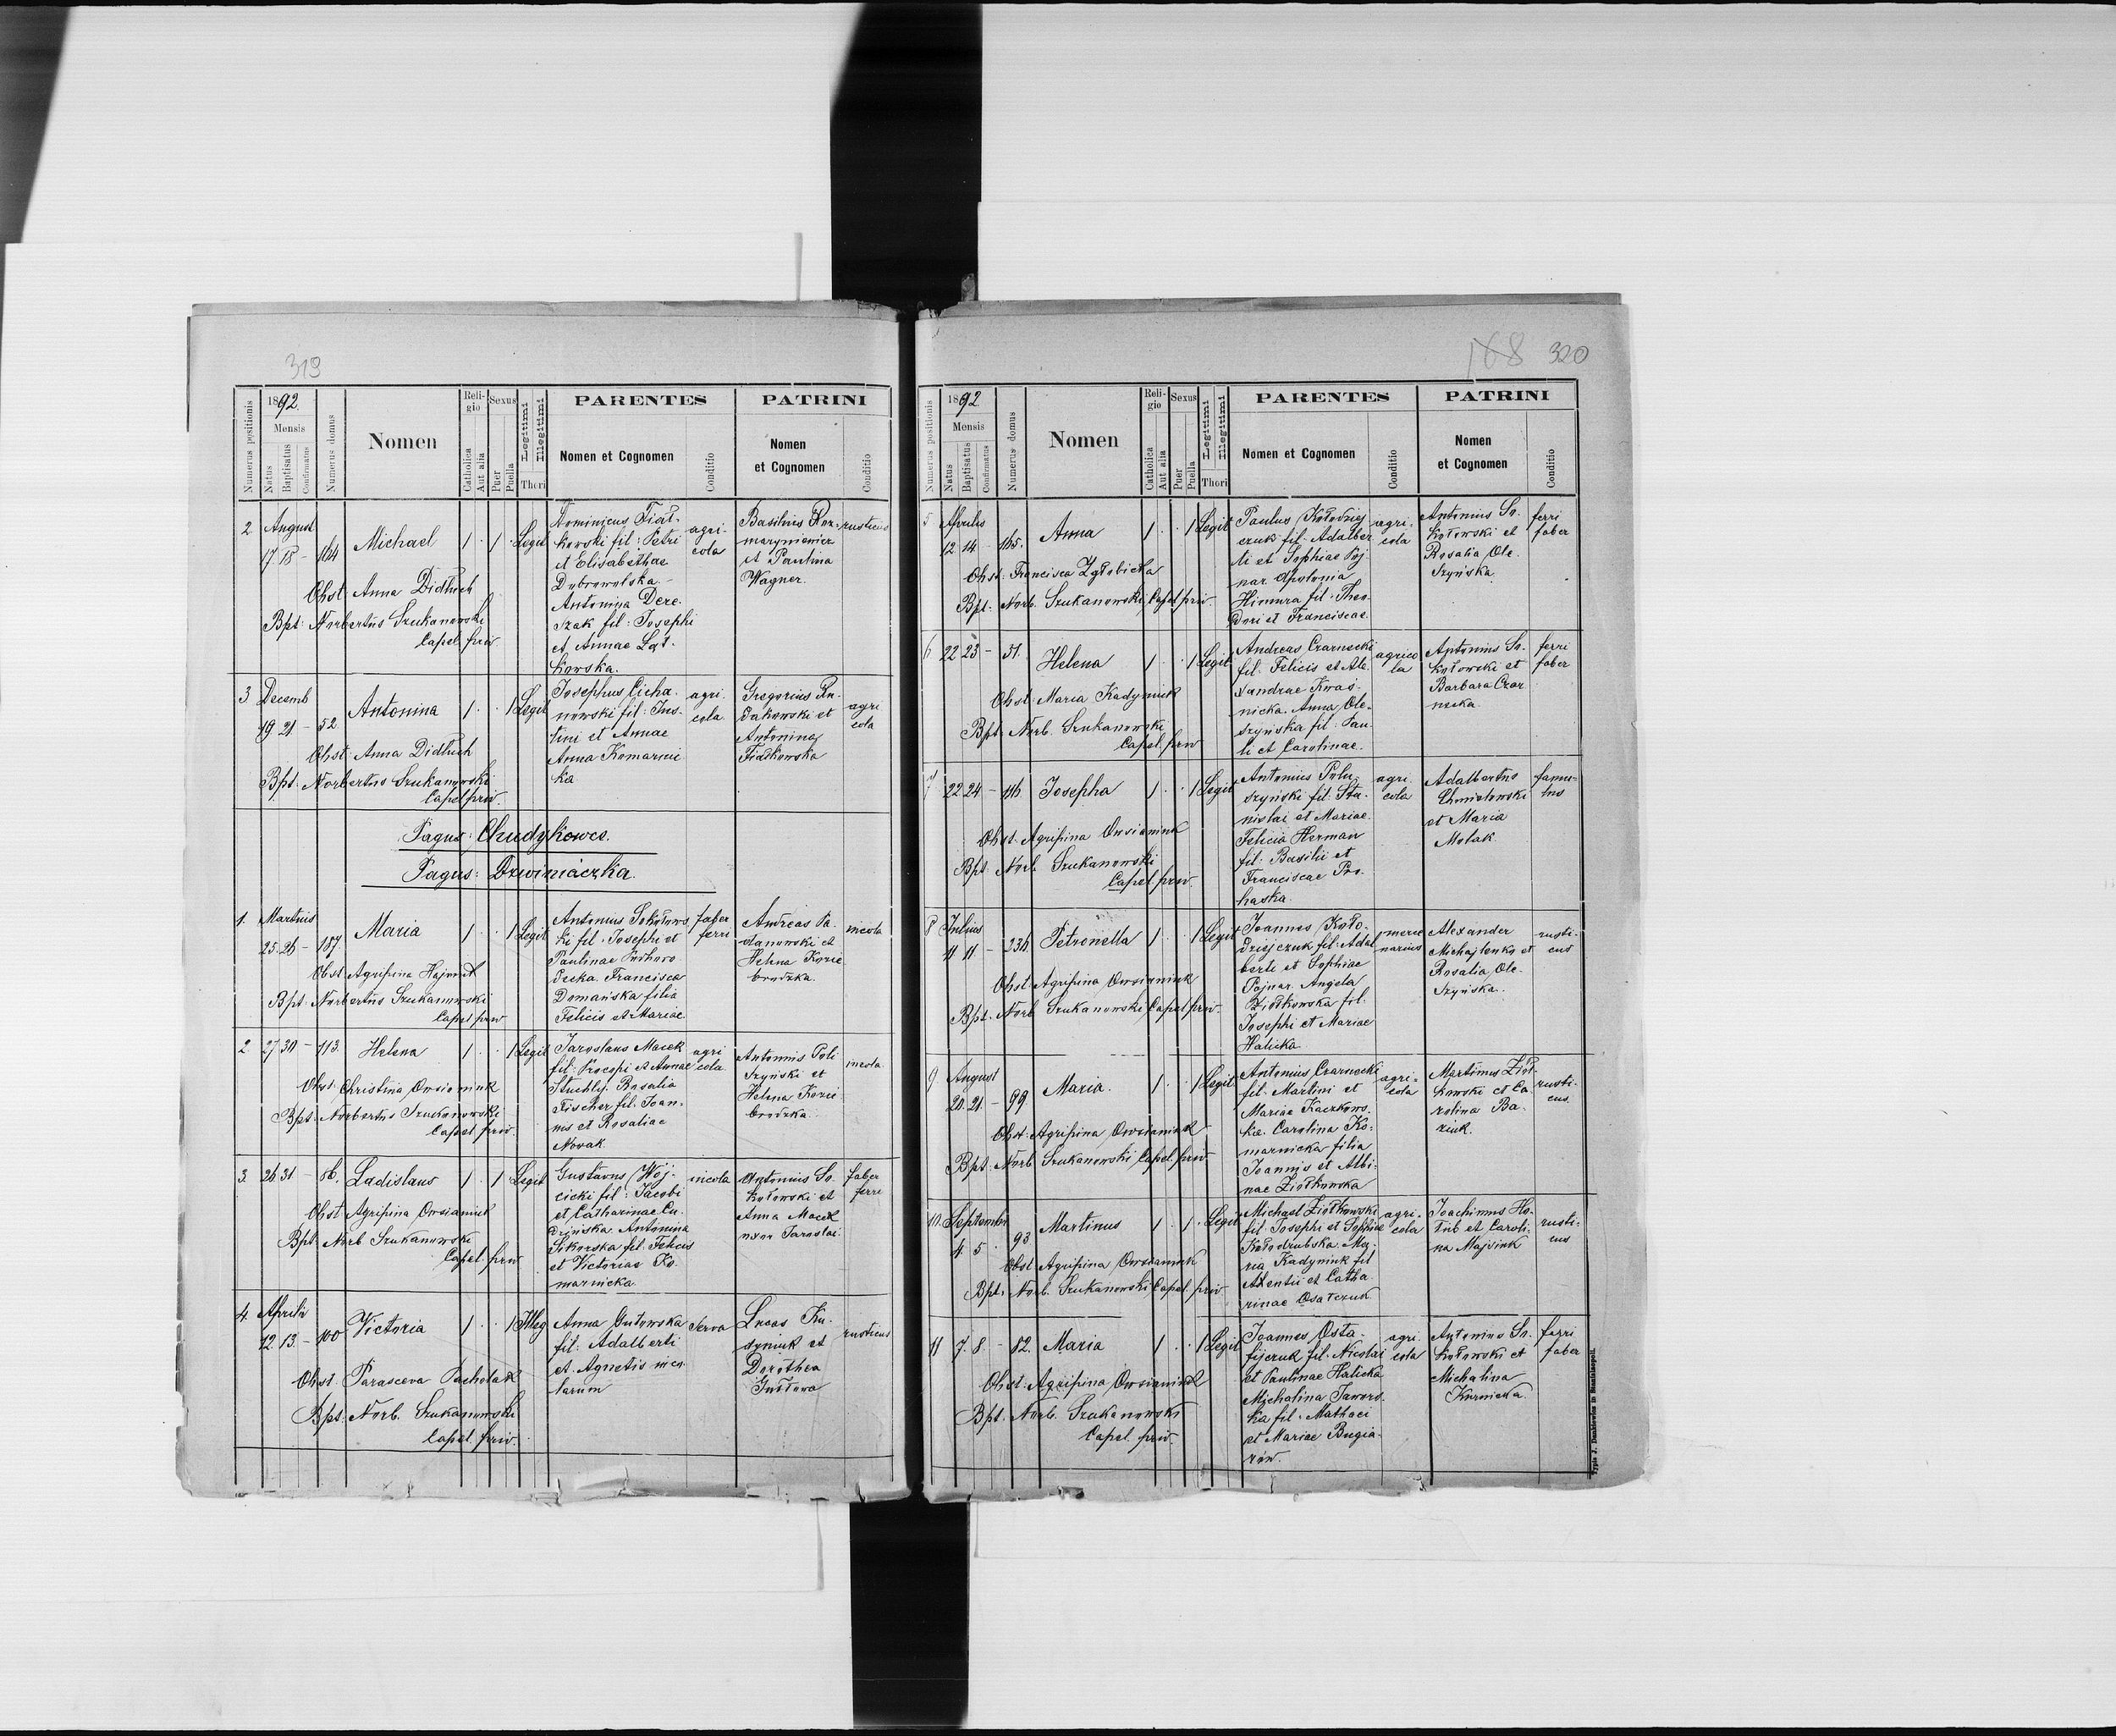 319
Numerus positionis
1892.
Mensis
Natus
Baptisatus
Confirmatus
Numerus domus
Nomen
Religio
Catholica
Aut alia
Sexus
Puer
Puella
Legitimi
Illegitimi
Thori
PARENTES
Nomen et Cognomen
Conditio
PATRINI
Nomen
et Cognomen
Conditio
2 August
17 18 - 164
Michael
1 . 1 . Legit
Obst: Anna Didtuch
Bpt: Norbertus Szukanowski
Capel. priv.
Dominicus Fiał-
kowski fil: Petri
et Elisabethae
Dobrowolska -
Antonina Dere-
szak fil: Josephi
et Annae Lat-
kowska.
agri-
cola
Basilius Roz-
maryniewicz
et Paulina
Wagner.
rusticus
3 Decemb
19 21 - 52.
Antonina
1 . . 1 Legit
Obst: Anna Didtuch
Bpt: Norbertus Szukanowski
Capel priv.
Josephus Cicha-
nowski fil: Jus-
tini et Annae
Anna Komarnic
ka
agri-
cola
Gregorius Ru-
dakowski et
Antonina
Fiałkowska
agri
cola
Pagus: Chudykowce.
Pagus: Dzwiniaczka.
1. Martius
25. 26 - 187.
Maria
1 . . 1 Legit
Obst Agripina Hajniuk
Bpt: Norbertus Szukanowski
Capel priv
Antonius Sokołows
ki fil: Josephi et
Paulinae
Francisca
Domańska filia
Felicis et Mariae
faber
ferri
Andreas
et
Helena Kozie
brodzka.
incola
2. 27 30 - 113.
Helena
1 . . 1 Legit
Obst: Christina Owsianiuk
Bpt: Norbertus Szukanowski
Capel. priv.
Jaroslaus Macek
fil: Procopi et Annae
Stuchlyj. Rosalia
Fischer fil. Joan-
nis et Rosaliae
Nowak
agri
cola
Antonius Poli
szyński et
Helena Kozie
brodzka.
incola
3. 26 31 - 86.
Ladislaus
1 . 1 Legit
Obst Agripina Owsianiuk
Bpt: Norb Szukanowski
Capel. priv
Gustavus Woj-
cicki fil: Jacobi
et Catharinae Cu-
Antonina
Sikorska fil. Felicis
et Victoriae Ko-
marnicka
incola
Antonius So-
kołowski et
Anna Macek
uxor Jaroslai.
faber
ferri
4. Aprilis
12 13. - 100
Victoria
1 . . 1 Illeg
Obst. Parasceva Pacholak
Bpt: Norb. Szukanowski
Capel. priv.
Anna Gutowska
fil: Adalberti
et Agnetis inco-
larum
serva
Lucas Ku-
syniuk et
Dorothea
rusticus
168 320
Numerus positionis
1892
Mensis
Natus
Baptisatus
Confirmatus
Numerus domus
Nomen
Religio
Catholica
Aut alia
Sexus
Puer
Puella
Legitimi
Illegitimi
Thori
PARENTES
Nomen et Cognomen
Conditio
PATRINI
Nomen
et Cognomen
Conditio
5 Aprilis
12. 14 - 165.
Anna
1 . . 1 Legit
Obst: Francisca Zgłobicka
Bpt: Norb. Szukanowski Capel priv.
Paulus Kołodziej
czuk fil. Adalber
ti et Sophiae Poj-
nar Apolonia
Himura fil. Theo-
dori et Franciscae
agri-
cola
Antonius So-
kołowski et
Rosalia Ole-
szyńska.
ferri
faber
6 22 23 - 31.
Helena
1 . . 1 Legit
Obst: Maria Kadyniuk
Bpt: Norb. Szukanowski
Capel. priv
Andreas Czarnecki
fil. Felicis et Ale-
xandrae Kwaś-
nicka. Anna Ole-
szyńska fil: Pau-
li et Carolinae.
agrico
la
Antonius So-
kołowski et
Barbara Czar
necka.
ferri
faber
7 22 24 - 146
Josepha
1 . . 1 Legit
Obst: Agripina Owsianiuk
Bpt: Norb Szukanowski
Capel. priv.
Antonius Polu-
szyński fil: Sta-
nislai et Mariae.
Felicia Herman
fil: Basilii et
Franciscae Pro-
haska.
agri
cola
Adalbertus
Chmielowski
et Maria
Molak.
famu-
lus
8 Julius
11 11 - 236
Petronella
1 . . 1 Legit
Obst Agripina Owsianiuk
Bpt: Norb Szukanowski Capel priv.
Joannes Koło-
dziejczuk fil: Adal
berti et Sophiae
Pojnar. Angela
Ziółkowska fil.
Josephi et Mariae
Halicka
merce
narius
Alexander
Michajlenko et
Rosalia Ole-
szyńska.
rusti-
cus
9 August
20. 21. - 99
Maria.
1 . . 1 Legit
Obst: Agripina Owsianiuk
Bpt: Norb Szukanowski Capel. priv
Antonius Czarnecki
fil. Martini et
Mariae Kaczkows-
ka. Carolina Ko-
marnicka filia
Joannis et Albi-
nae Ziółkowska
agri-
cola
Martinus Ziół-
kowski et Ca-
rolina Ba-
ziuk.
rusti-
cus
10. Septembr
4. 5 . 93
Martinus
1 . 1 . Legit
Obst Agripina Owsianiuk
Bpt: Norb. Szukanowski Capel. priv
Michael Ziółkowski
fil. Josephi et Sophiae
Kołodrubska. Ma-
ria Kadyniuk fil
Axentii et Catha-
rinae Osatczuk
agri-
cola
Joachimus Ho-
łub et Caroli-
na Majsiuk
rusti-
cus
11 7. 8. - 82.
Maria
1 . . 1 Legit
Obst: Agripina Owsianiuk
Bpt. Norb. Szukanowski
Capel. priv.
Joannes Osta-
fijczuk fil. Nicolai
et Paulinae Halicka
Michalina Jawors-
ka fil. Mathaei
et Mariae Bugia-
rów.
agri
cola
Antonius So-
kołowski et
Michalina
Kurnicka
ferri
faber
Typis J. Dankiewicz in Stanislaopoli.